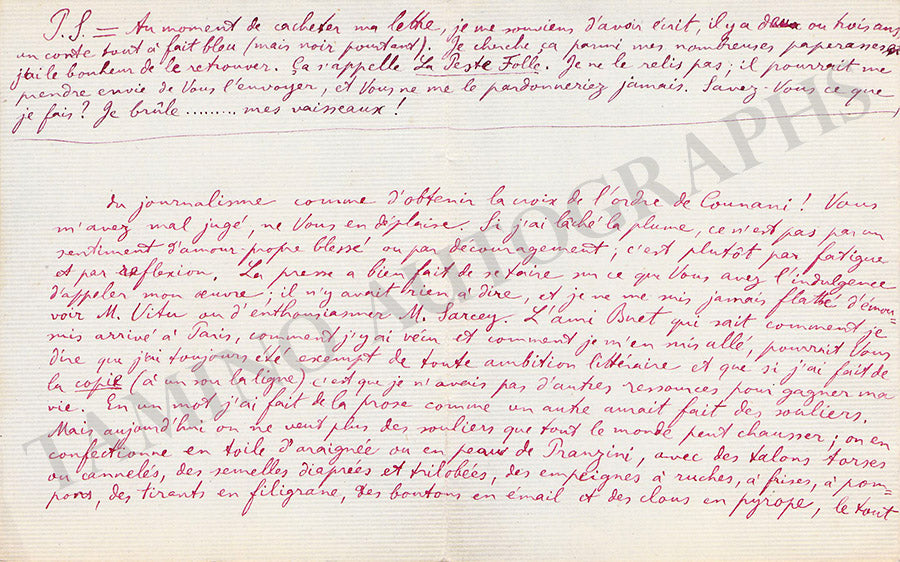 P.S. = Au moment de cacheter ma lettre, je me souviens d'avoir écrit, il y a deux ou trois ans,
un conte tout à fait bleu (mais noir pourtant). Je cherche ça parmi mes nombreuses paperasses et
j'ai le bonheur de le retrouver. Ça s'appelle La Peste Folle. Je ne le relis pas; il pourrait me
prendre envie de Vous l'envoyer, et Vous ne me le pardonneriez jamais. Savez-Vous ce que
je fais? Je brûle ......... mes vaisseaux!
du journalisme comme d'obtenir la croix de l'ordre de Counani! Vous
m'avez mal jugé, ne Vous en déplaise. Si j'ai lâché la plume, ce n'est pas par un
sentiment d'amour-propre blessé ou par découragement; c'est plutôt par fatigue
et par réflexion. La presse a bien fait de se taire sur ce que Vous avez l'indulgence
d'appeler mon œuvre; il n'y avait rien à dire, et je ne me suis jamais flatté d'émou-
voir M. Vitu ou d'enthousiasmer M. Sarcey. L'ami Buet qui sait comment je
suis arrivé à Paris, comment j'y ai vécu et comment je m'en suis allé, pourrait Vous
dire que j'ai toujours été exempt de toute ambition littéraire et que si j'ai fait de
la copie (à un sou la ligne) c'est que je n'avais pas d'autres ressources pour gagner ma
vie. En un mot j'ai fait de la prose comme un autre aurait fait des souliers.
Mais aujourd'hui on ne veut plus des souliers que tout le monde peut chausser; on en
confectionne en toile d'araignée ou en peau de Pranzini, avec des talons torses
ou cannelés, des semelles diaprées et trilobées, des empeignes à ruches, à frises, à pom-
pons, des tirants en filigrane, des boutons en émail et des clous en pyrope, le tout
TAMINO AUTOGRAPHS